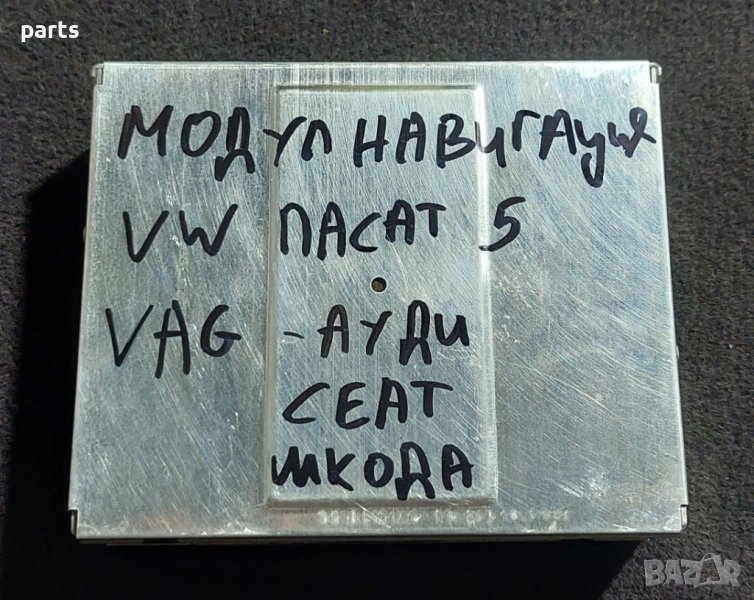 parts
МОДУЛ НАВИГАЦИЯ
VW ПАСАТ 5
VAG - АУДИ
СЕАТ
ШКОДА
BAZAR